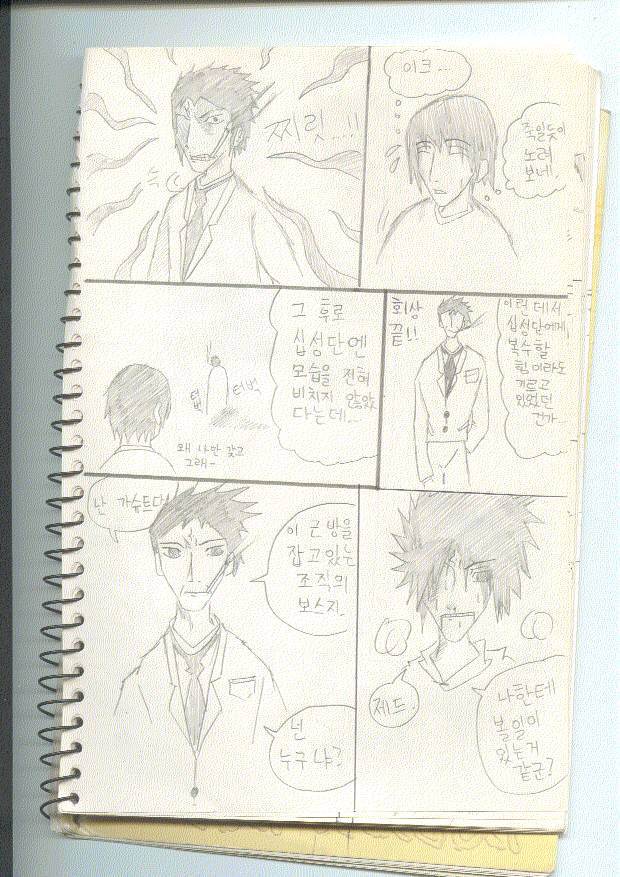 찌릿...!!
슥
이크...
죽일듯이
노려
보네.
그 후로
십성단엔
모습을 전혀
비치지 않았
다는데...
텁
터벅
왜 나만 갖고
그래~
회상
끝!!
이런 데서
십성단에게
복수할
힘이라도
기르고
있었던
건가...
난 가슈트다!
이 근방을
잡고있는
조직의
보스지.
넌
누구냐?
제드.
나한테
볼일이
있는거
같군?